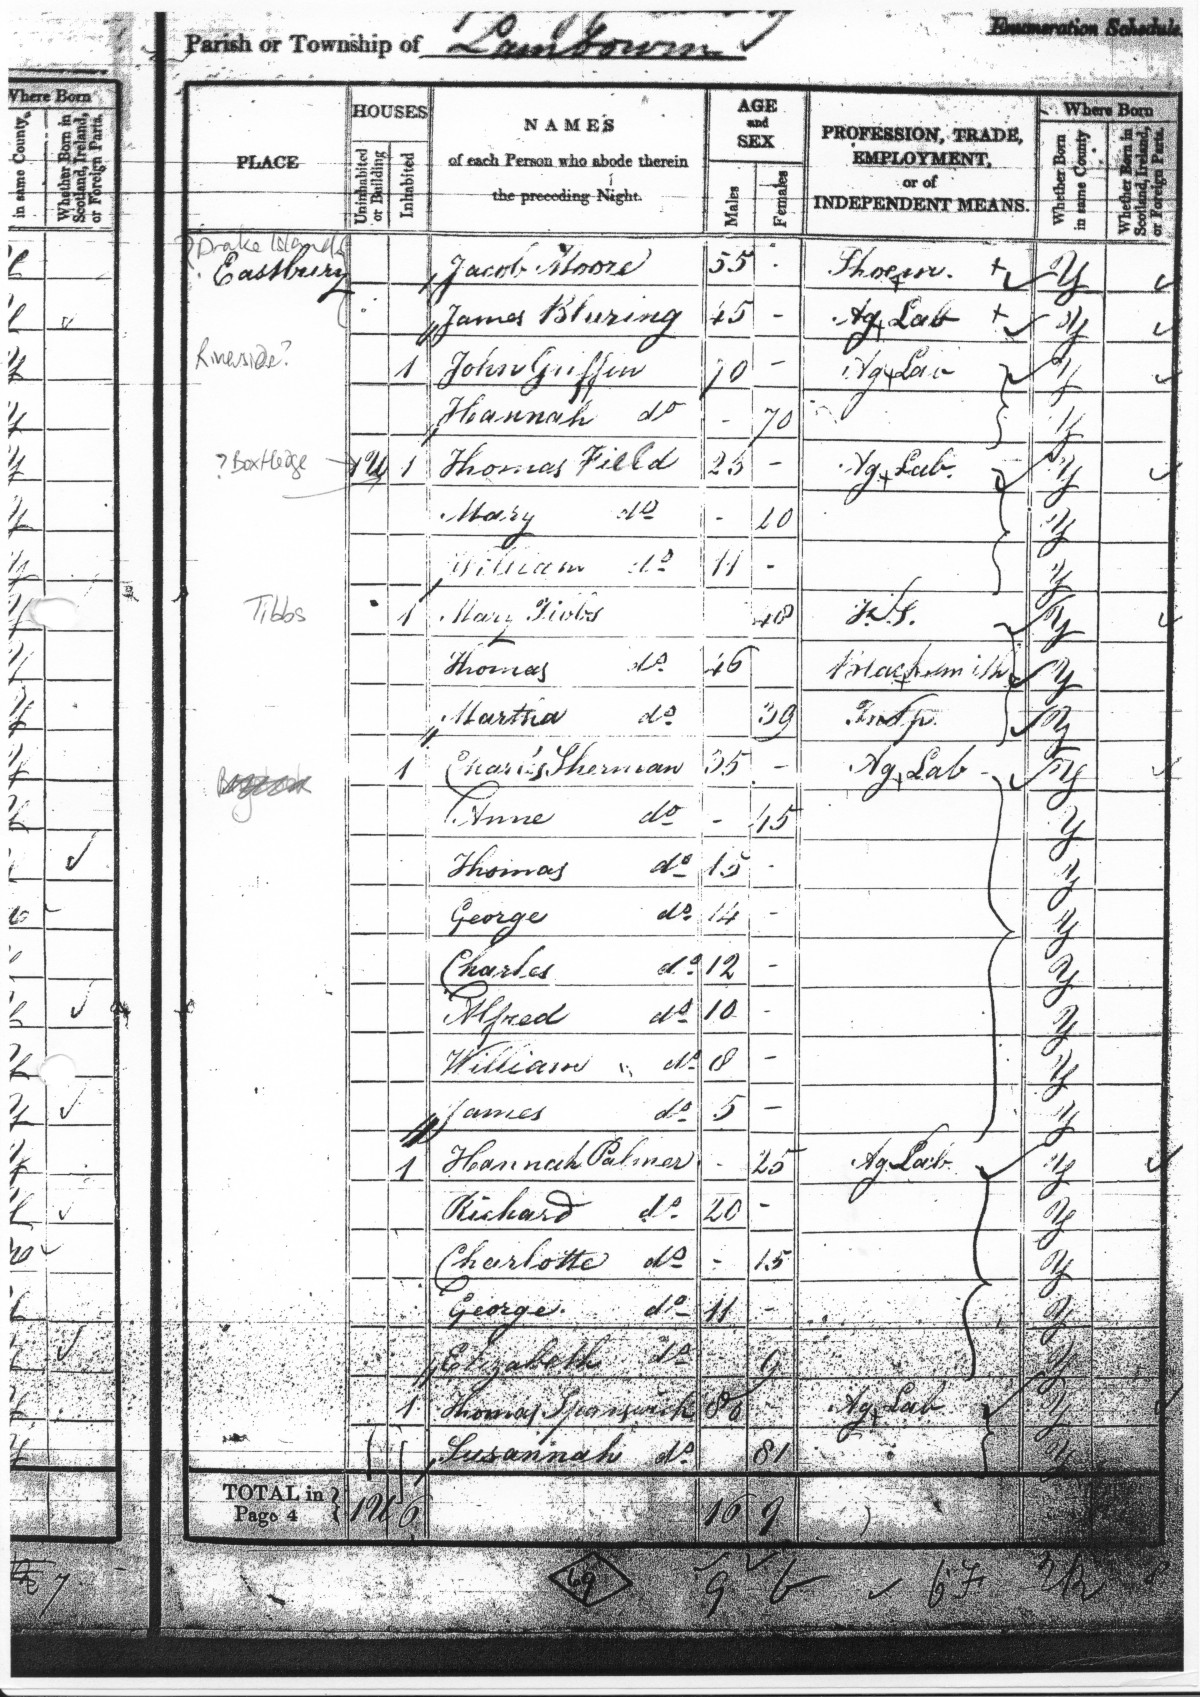 Parish or Township of Lambourn
Enumeration Schedule.
Where Born
in same County,
Whether Born in Scotland, Ireland, or Foreign Parts.
PLACE
HOUSES
Uninhabited or Building
Inhabited
NAMES
of each Person who abode therein
the preceding Night.
AGE
and
SEX
Males
Females
PROFESSION, TRADE,
EMPLOYMENT,
or of
INDEPENDENT MEANS.
Where Born
Whether Born in same County
Whether Born in Scotland, Ireland, or Foreign Parts.
? Drake Islands
Eastbury Jacob Moore 55 - Shoem. Y
James 45 - Ag Lab Y
Riverside? 1 John Griffin 70 - Ag Lab Y
Hannah do - 70 Y
? Box Hedge 1U 1 Thomas Field 25 - Ag Lab. Y
Mary do - 20 Y
William do 11 - Y
Tibbs 1 Mary Tibbs 48 F.S. Y
Thomas do 46 Blacksmith Y
Martha do 39 Y
1 Charles Sherman 35 - Ag Lab Y
Anne do - 45 Y
Thomas do 15 - Y
George do 14 - Y
Charles do 12 - Y
Alfred do 10 - Y
William do 8 - Y
James do 5 - Y
1 Hannah Palmer - 25 Ag Lab Y
Richard do 20 - Y
Charlotte do - 15 Y
George do 11 - Y
Elizabeth do 9 Y
1 Thomas 86 Ag Lab Y
Susannah do 81 Y
TOTAL in
Page 4 } 1U 6 16 9
7 69 9 6 6F